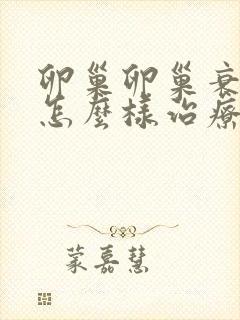 卵巢卵巢衰
怎麼樣治療
蒙嘉慧